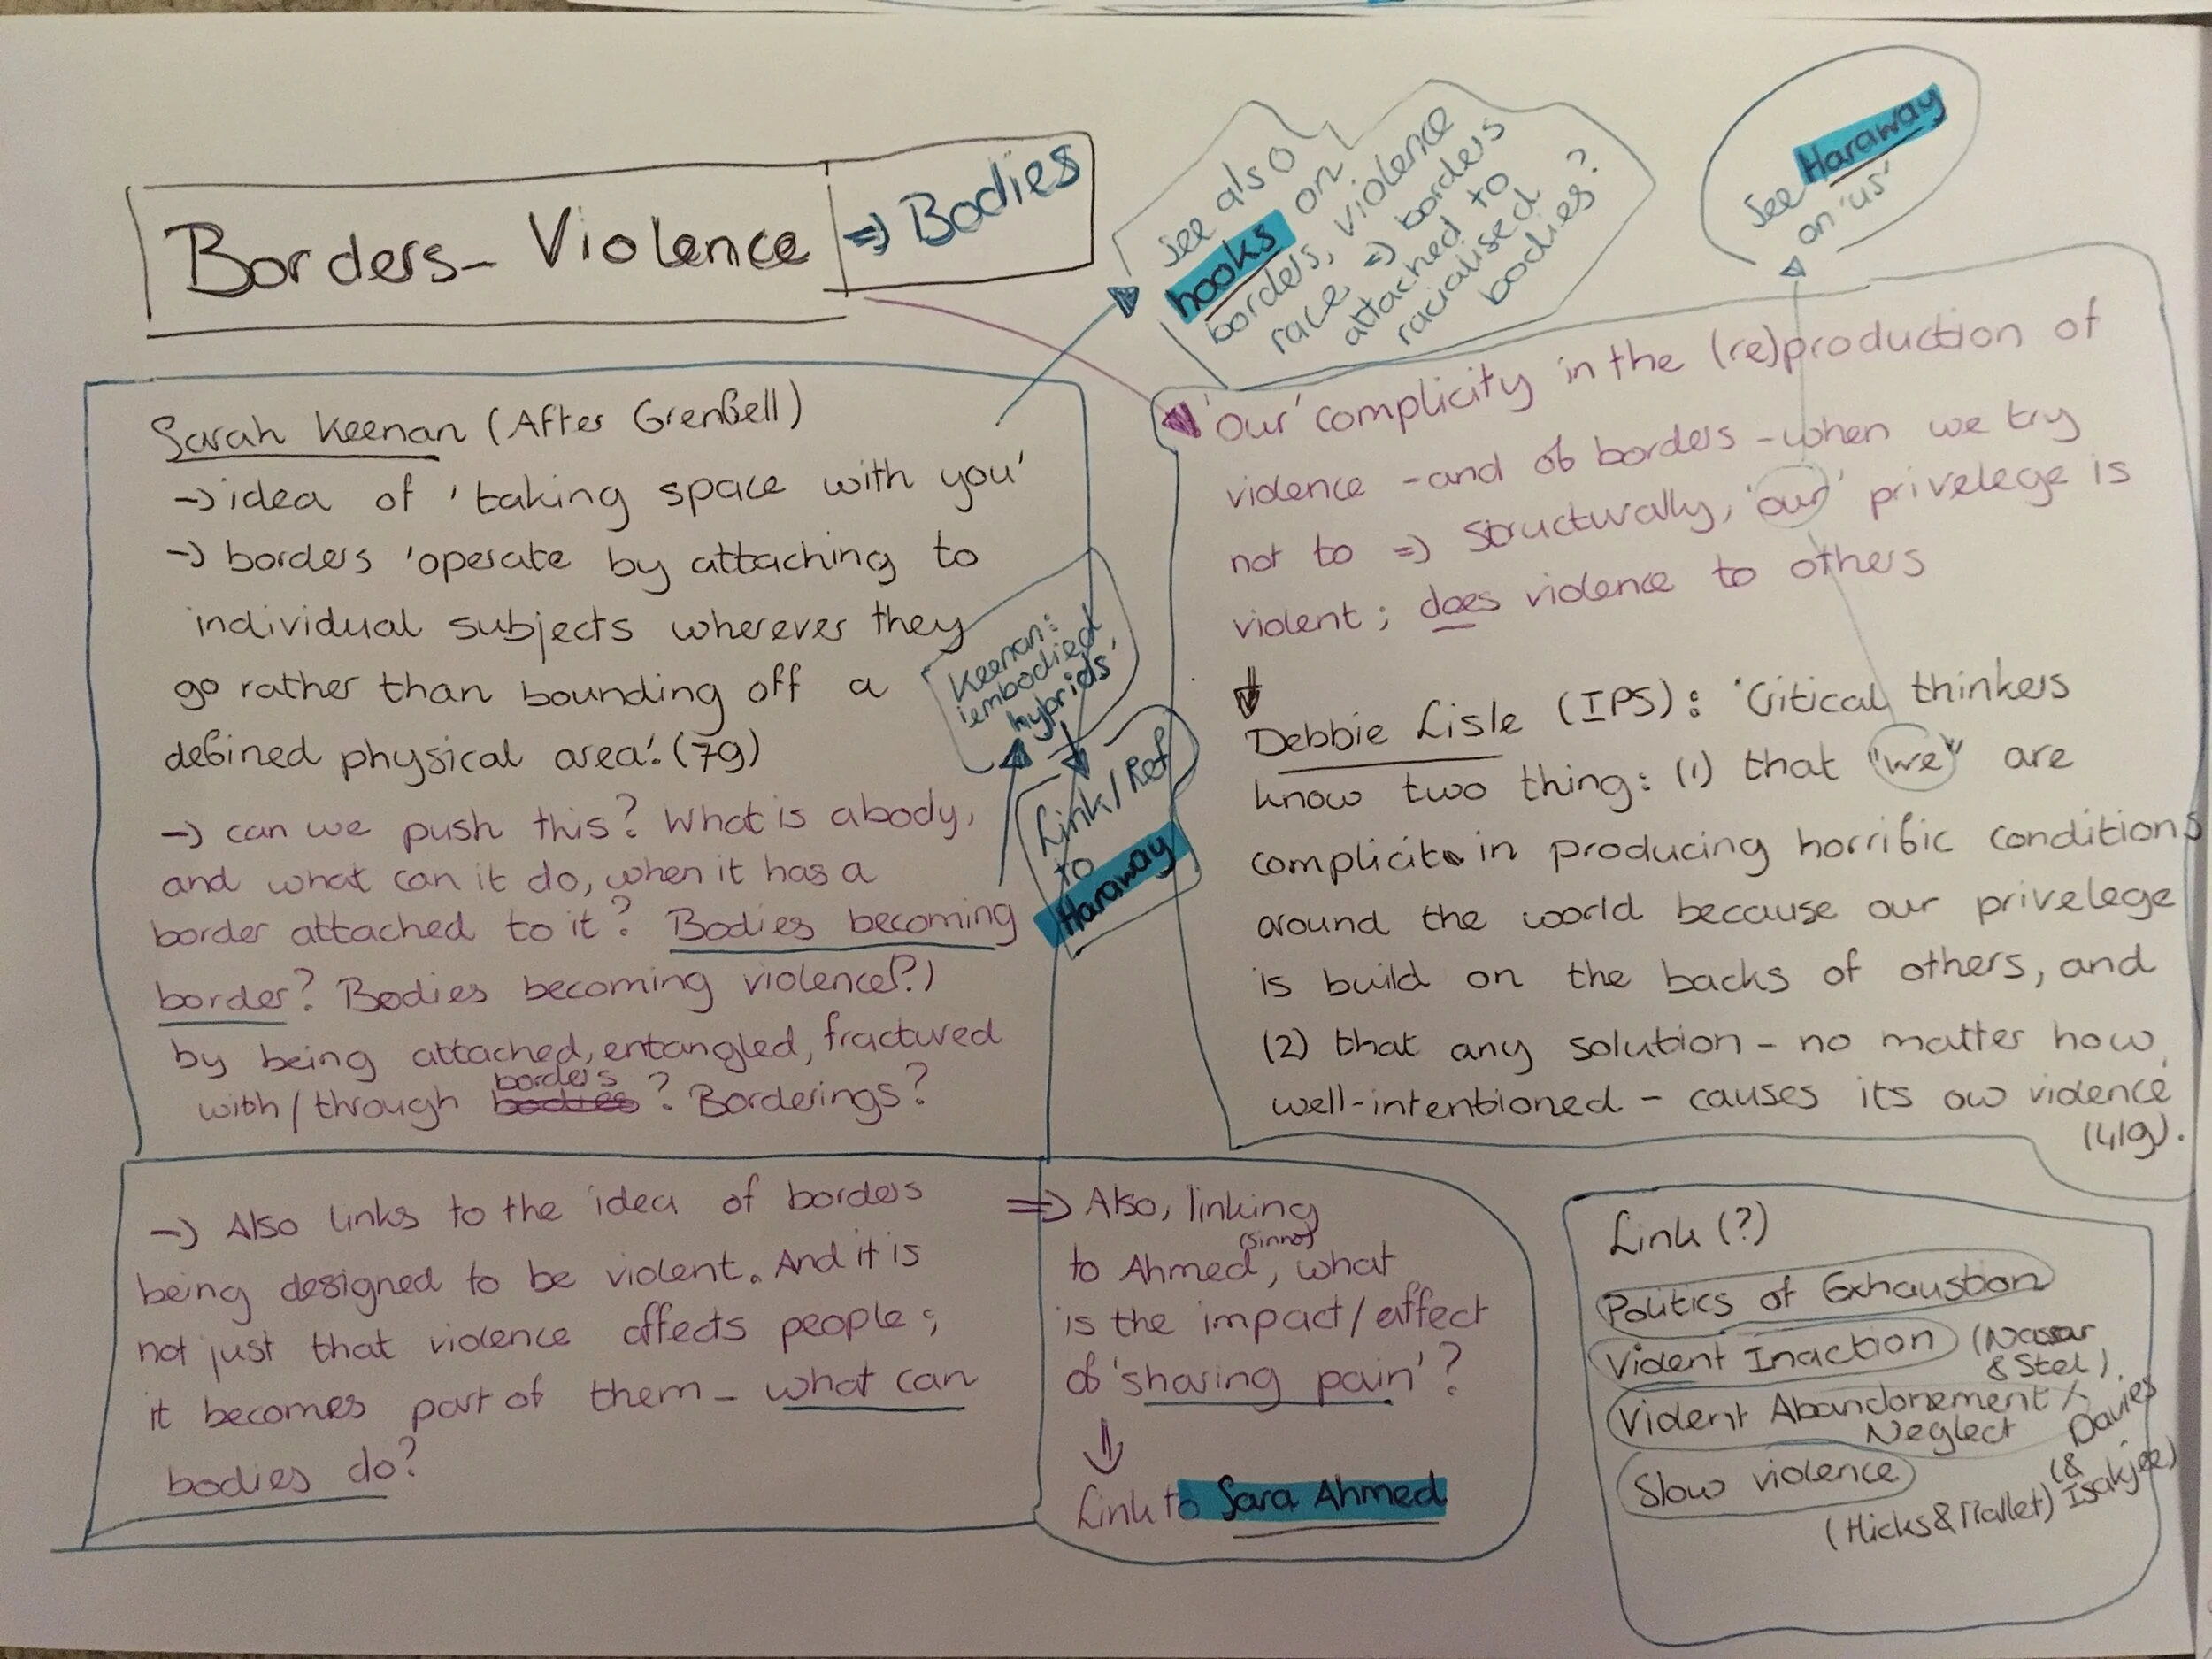 Borders - Violence => Bodies
See also
hooks on
borders, violence
race => borders
attached to
racialised
bodies?
See Haraway
on 'us'
Sarah Keenan (After Grenfell)
-> idea of 'taking space with you'
-> borders 'operate by attaching to
individual subjects wherever they
go rather than bounding off a
defined physical area'. (79)
-> can we push this? What is a body,
and what can it do, when it has a
border attached to it? Bodies becoming
border? Bodies becoming violence(?)
by being attached, entangled, fractured
with/through bodies borders? Borderings?
Keenan:
'embodied
hybrids'
Link/Ref
to
Haraway
'Our' complicity in the (re)production of
violence - and of borders - when we try
not to => structurally, 'our' privelege is
violent; does violence to others
Debbie Lisle (IPS): 'Critical thinkers
know two thing: (1) that "we" are
complicit in producing horrific conditions
around the world because our privelege
is build on the backs of others, and
(2) that any solution - no matter how
well-intentioned - causes its ow violence'
(419).
-> Also links to the idea of borders
being designed to be violent. And it is
not just that violence affects people;
it becomes part of them - what can
bodies do?
=> Also, linking
to Ahmed (Sinno), what
is the impact/affect
of 'sharing pain'?
Link to Sara Ahmed
Link (?)
Politics of Exhaustion
Violent Inaction (Nassar
& Stel)
Violent Abandonement /
Neglect Davies
Slow violence (& Isakjee)
(Hicks & Mallet)